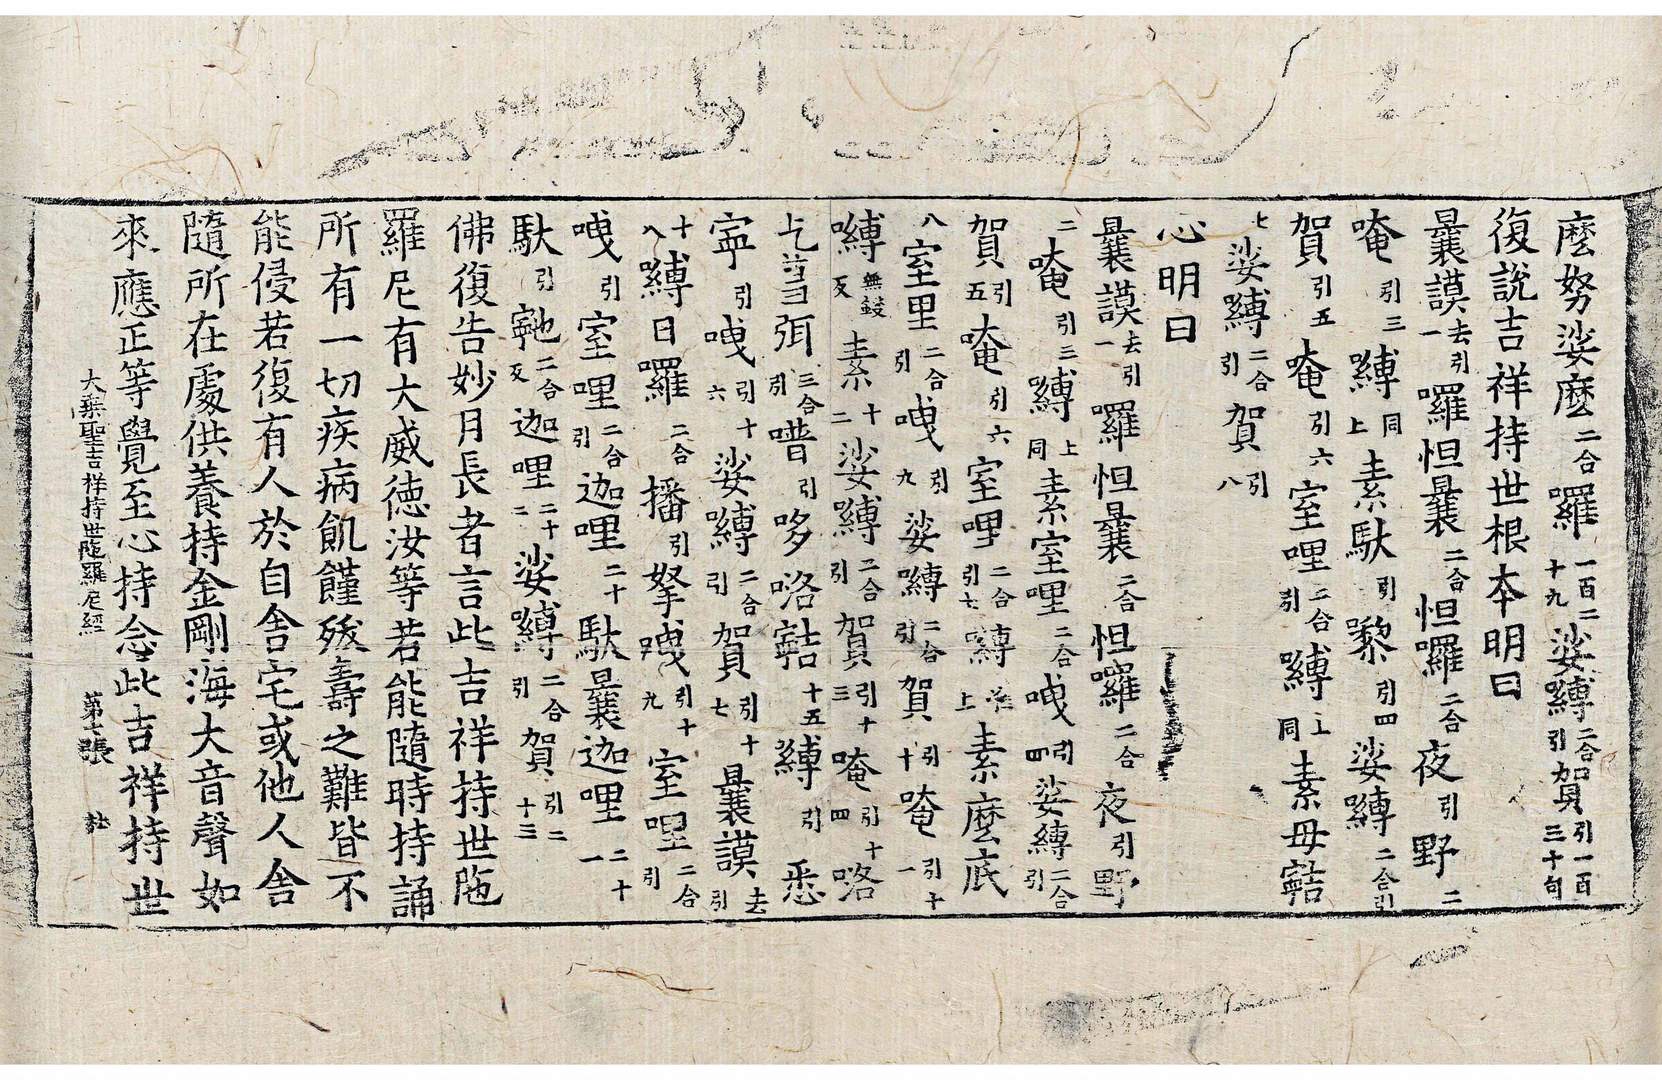 麼努娑麼二合囉一百二十九娑嚩二合引賀引一百三十句
復說吉祥持世根本明曰
曩謨去引一囉怛曩二合怛囉二合夜引野二
唵引三嚩同上素馱引黎引四娑嚩二合引
賀引五唵引六室哩二合引嚩上同素母𡫸
七娑嚩二合引賀引八
心明曰
曩謨去引一囉怛曩二合怛囉二合夜引野
二唵引三嚩上同素室哩二合曳引四娑嚩二合引
賀引五唵引六室哩二合引七嚩上素麼底
八室里二合引曳引九娑嚩二合引賀引十唵引十一
嚩無鼓反素十二娑嚩二合引賀引十三唵引十四咯
三合引噆引哆咯𡫸十五嚩引悉
寧引曳引十六娑嚩二合引賀引十七曩謨去引
十八嚩日囉二合播引拏曳引十九室哩二合引
曳引室哩二合引迦哩二十馱曩迦哩二十一
馱引𪧀二合反迦哩二十二娑嚩二合引賀引二十三
佛復告妙月長者言此吉祥持世陁
羅尼有大威德汝等若能隨時持誦
所有一切疾病飢饉殀壽之難皆不
能侵若復有人於自舍宅或他人舍
隨所在處供養持金剛海大音聲如
來應正等覺至心持念此吉祥持世
大乘聖吉祥持世陁羅尼經 第七張